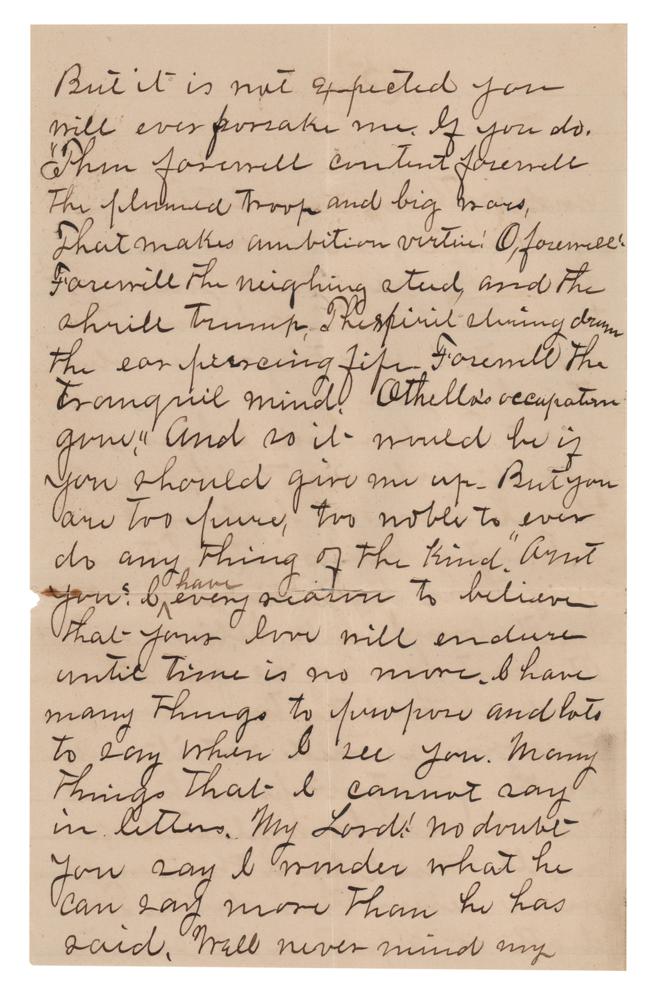 But it is not expected you
will ever forsake me. If you do.
"Then farewell content farewell
the plumed troop and big wars,
That makes ambition virtue! O, farewell!
Farewell the neighing steed, and the
shrill trump, The spirit stiring drum
the ear piercing fife. Farewell the
tranquil mind! Othello's occupation
gone," And so it would be if
you should give me up. But you
are too pure, too noble to ever
do any thing of the kind." Arnt
you? I have every reason to believe
that your love will endure
until time is no more. I have
many things to propose and lots
to say when I see you. Many
things that I cannot say
in letters. My Lord! no doubt
you say I wonder what he
can say more than he has
said. Well never mind my